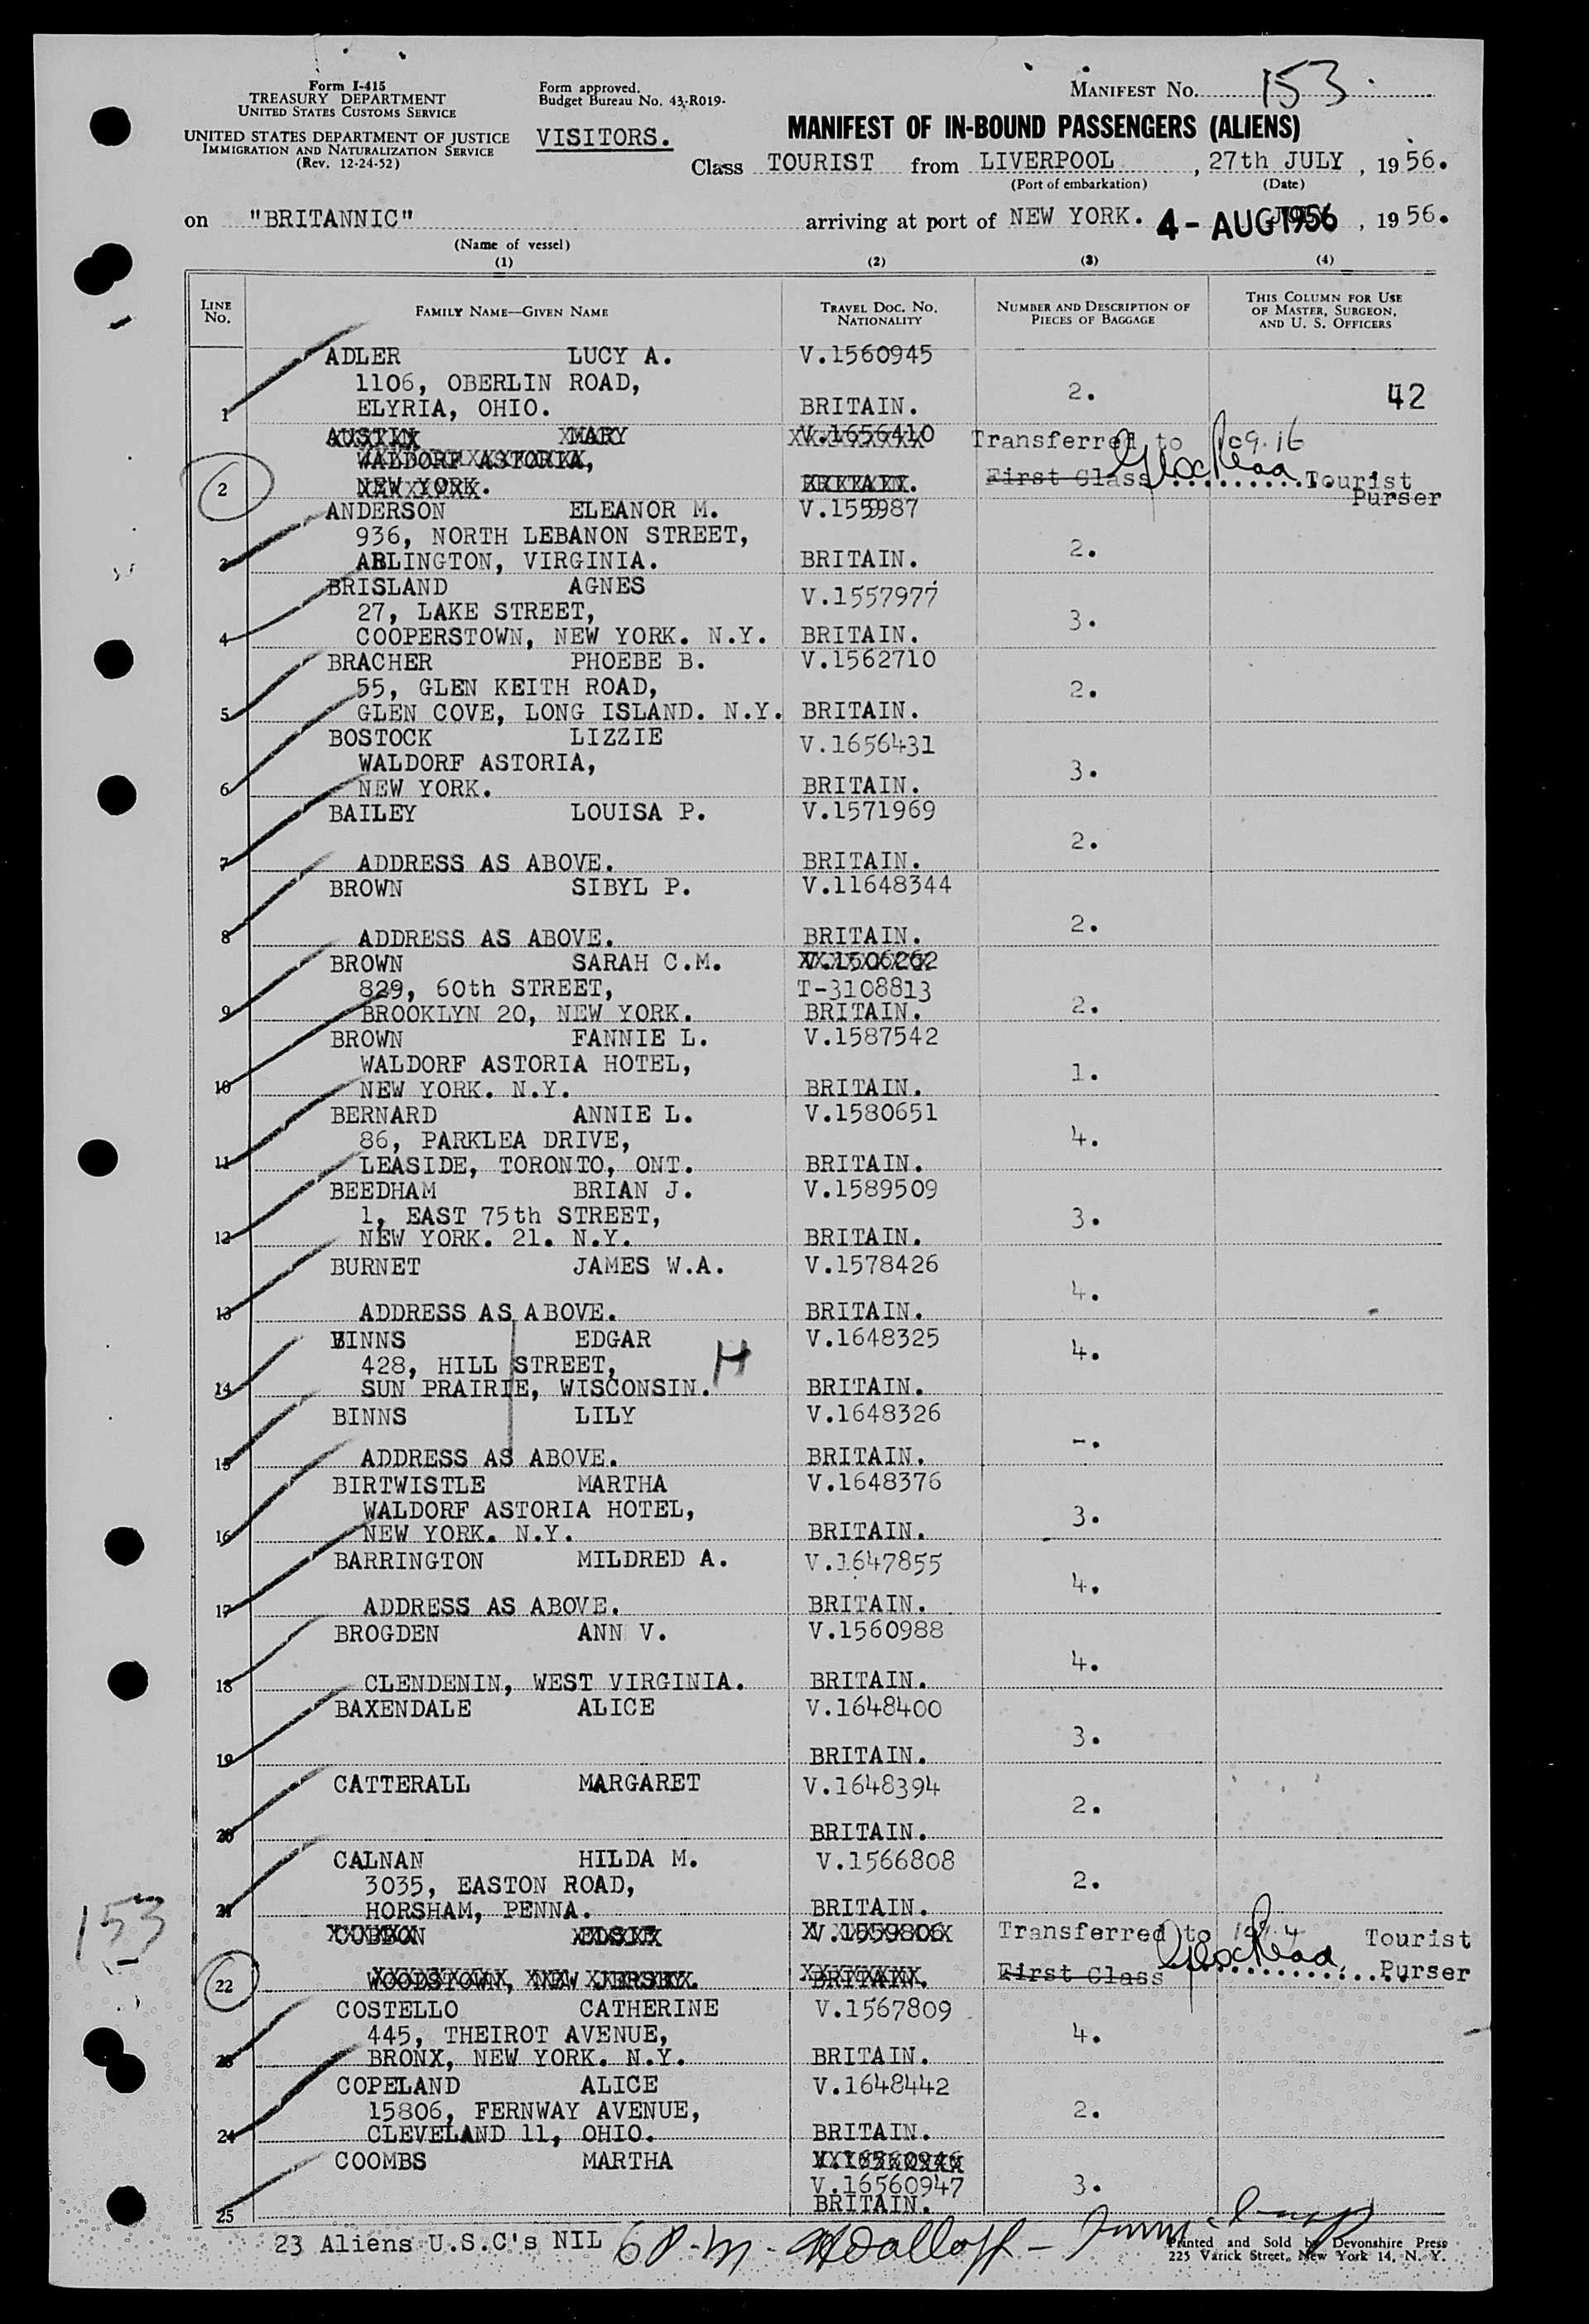 Form I-415
TREASURY DEPARTMENT
UNITED STATES CUSTOMS SERVICE
UNITED STATES DEPARTMENT OF JUSTICE
IMMIGRATION AND NATURALIZATION SERVICE
(Rev. 12-24-52)
Form approved.
Budget Bureau No. 43-R019-
VISITORS.
MANIFEST NO. 153
MANIFEST OF IN-BOUND PASSENGERS (ALIENS)
Class TOURIST from LIVERPOOL, 27th JULY, 1956.
(Port of embarkation) (Date)
on "BRITANNIC" arriving at port of NEW YORK. 4-AUG 1956, 1956.
(Name of vessel)
(1) (2) (3) (4)
LINE No. FAMILY NAME—GIVEN NAME TRAVEL DOC. NO. NATIONALITY NUMBER AND DESCRIPTION OF PIECES OF BAGGAGE THIS COLUMN FOR USE OF MASTER, SURGEON, AND U. S. OFFICERS
ADLER LUCY A. V.1560945
1106, OBERLIN ROAD, 2. 42
1 ELYRIA, OHIO. BRITAIN.
AUSTIN MARY V.1656410 Transferred to
WALDORF ASTORIA,
2 NEW YORK. BRITAIN. First Class Tourist
Purser
ANDERSON ELEANOR M. V.1559987
936, NORTH LEBANON STREET, 2.
3 ARLINGTON, VIRGINIA. BRITAIN.
BRISLAND AGNES V.1557977
27, LAKE STREET, 3.
4 COOPERSTOWN, NEW YORK. N.Y. BRITAIN.
BRACHER PHOEBE B. V.1562710
55, GLEN KEITH ROAD, 2.
5 GLEN COVE, LONG ISLAND. N.Y. BRITAIN.
BOSTOCK LIZZIE V.1656431
WALDORF ASTORIA, 3.
6 NEW YORK. BRITAIN.
BAILEY LOUISA P. V.1571969
2.
7 ADDRESS AS ABOVE. BRITAIN.
BROWN SIBYL P. V.11648344
2.
8 ADDRESS AS ABOVE. BRITAIN.
BROWN SARAH C.M. V.1506262
829, 60th STREET, T-3108813
9 BROOKLYN 20, NEW YORK. BRITAIN. 2.
BROWN FANNIE L. V.1587542
WALDORF ASTORIA HOTEL, 1.
10 NEW YORK. N.Y. BRITAIN.
BERNARD ANNIE L. V.1580651
86, PARKLEA DRIVE, 4.
11 LEASIDE, TORONTO, ONT. BRITAIN.
BEEDHAM BRIAN J. V.1589509
1, EAST 75th STREET, 3.
12 NEW YORK. 21. N.Y. BRITAIN.
BURNET JAMES W.A. V.1578426
4.
13 ADDRESS AS ABOVE. BRITAIN.
BINNS EDGAR V.1648325
428, HILL STREET, H 4.
14 SUN PRAIRIE, WISCONSIN. BRITAIN.
BINNS LILY V.1648326
-.
15 ADDRESS AS ABOVE. BRITAIN.
BIRTWISTLE MARTHA V.1648376
WALDORF ASTORIA HOTEL, 3.
16 NEW YORK. N.Y. BRITAIN.
BARRINGTON MILDRED A. V.1647855
4.
17 ADDRESS AS ABOVE. BRITAIN.
BROGDEN ANN V. V.1560988
4.
18 CLENDENIN, WEST VIRGINIA. BRITAIN.
BAXENDALE ALICE V.1648400
3.
19 BRITAIN.
CATTERALL MARGARET V.1648394
2.
20 BRITAIN.
CALNAN HILDA M. V.1566808
3035, EASTON ROAD, 2.
21 HORSHAM, PENNA. BRITAIN.
153
COBBON ELSIE V.1559806 Transferred to Tourist
22 WOODSTOWN, NEW JERSEY. BRITAIN. First Class Purser
COSTELLO CATHERINE V.1567809
445, THEIROT AVENUE, 4.
23 BRONX, NEW YORK. N.Y. BRITAIN.
COPELAND ALICE V.1648442
15806, FERNWAY AVENUE, 2.
24 CLEVELAND 11, OHIO. BRITAIN.
COOMBS MARTHA V.16560946
V.16560947 3.
25 BRITAIN.
23 Aliens U.S.C's NIL 6 P.M.
Printed and Sold by Devonshire Press
225 Varick Street, New York 14, N. Y.